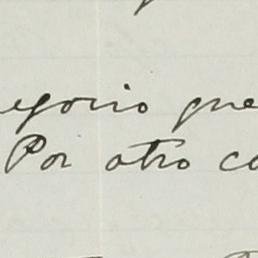 egorio que
Por otro co